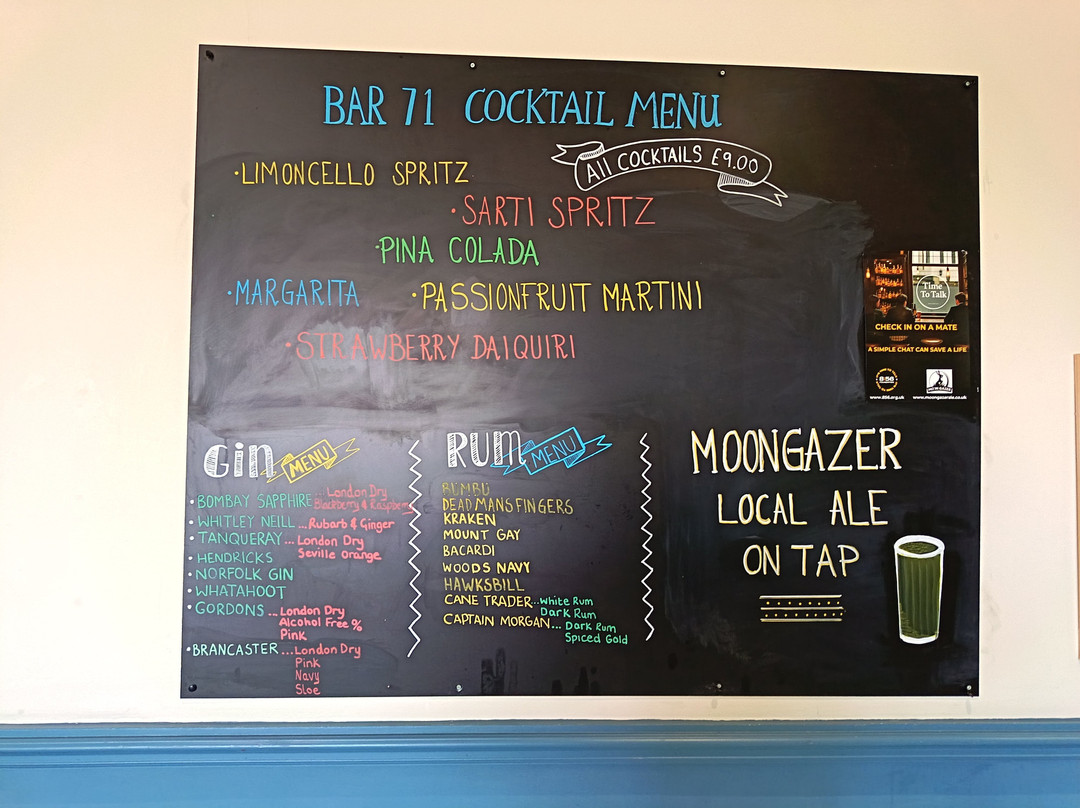 BAR 71 COCKTAIL MENU
All COCKTAILS £9.00
·LIMONCELLO SPRITZ
·SARTI SPRITZ
·PINA COLADA
·MARGARITA ·PASSIONFRUIT MARTINI
·STRAWBERRY DAIQUIRI
Time
To Talk
CHECK IN ON A MATE
A SIMPLE CHAT CAN SAVE A LIFE
www.moongazerale.co.uk
Gin MENU
·BOMBAY SAPPHIRE... London Dry
Blackberry & Raspberry
·WHITLEY NEILL ...Rubarb & Ginger
·TANQUERAY...London Dry
Seville Orange
·HENDRICKS
·NORFOLK GIN
·WHATAHOOT
·GORDONS ...London Dry
Alcohol Free %
Pink
·BRANCASTER ...London Dry
Pink
Navy
Sloe
RUM MENU
BUMBU
DEADMANS FINGERS
KRAKEN
MOUNT GAY
BACARDI
WOODS NAVY
HAWKSBILL
CANE TRADER...White Rum
Dark Rum
CAPTAIN MORGAN... Dark Rum
Spiced Gold
MOONGAZER
LOCAL ALE
ON TAP